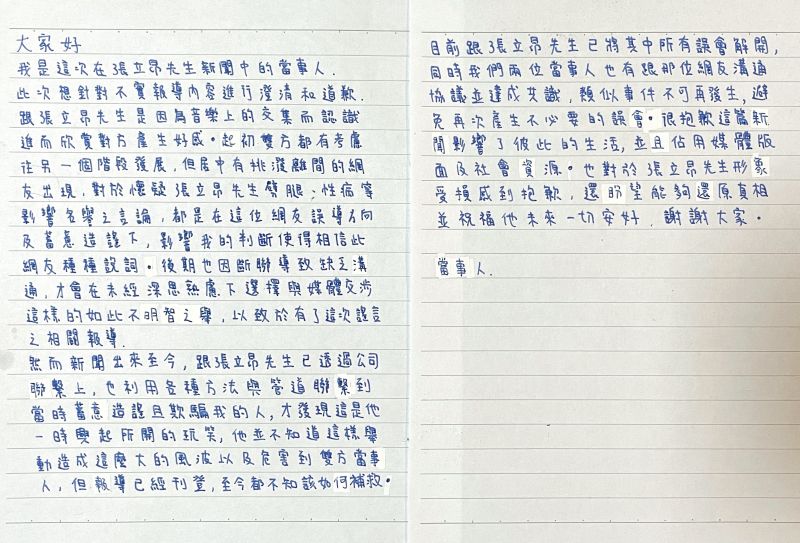 大家好
我是這次在張立昂先生新聞中的當事人.
此次想針對不實報導內容進行澄清和道歉.
跟張立昂先生是因為音樂上的交集而認識
進而欣賞對方產生好感。起初雙方都有考慮
往另一個階段發展,但居中有挑潑離間的網
友出現,對於懷疑張立昂先生劈腿;性病等
影響名譽之言論,都是在這位網友誤導方向
及蓄意造謠下,影響我的判斷使得相信此
網友種種說詞。後期也因斷聯導致缺乏溝
通,才會在未經深思熟慮下選擇與媒體交涉
這樣的如此不明智之舉,以致於有了這次謠言
之相關報導.
然而新聞出來至今,跟張立昂先生已透過公司
聯繫上,也利用各種方法與管道聯繫到
當時蓄意造謠且欺騙我的人,才發現這是他
一時興起所開的玩笑,他並不知道這樣舉
動造成這麼大的風波以及危害到雙方當事
人,但報導已經刊登,至今都不知該如何補救。
目前跟張立昂先生已將其中所有誤會解開,
同時我們兩位當事人也有跟那位網友溝通
協議並達成共識,類似事件不可再發生,避
免再次產生不必要的誤會。很抱歉這篇新
聞影響了彼此的生活,並且佔用媒體版
面及社會資源。也對於張立昂先生形象
受損感到抱歉,還盼望能夠還原真相
並祝福他未來一切安好.謝謝大家。
當事人.